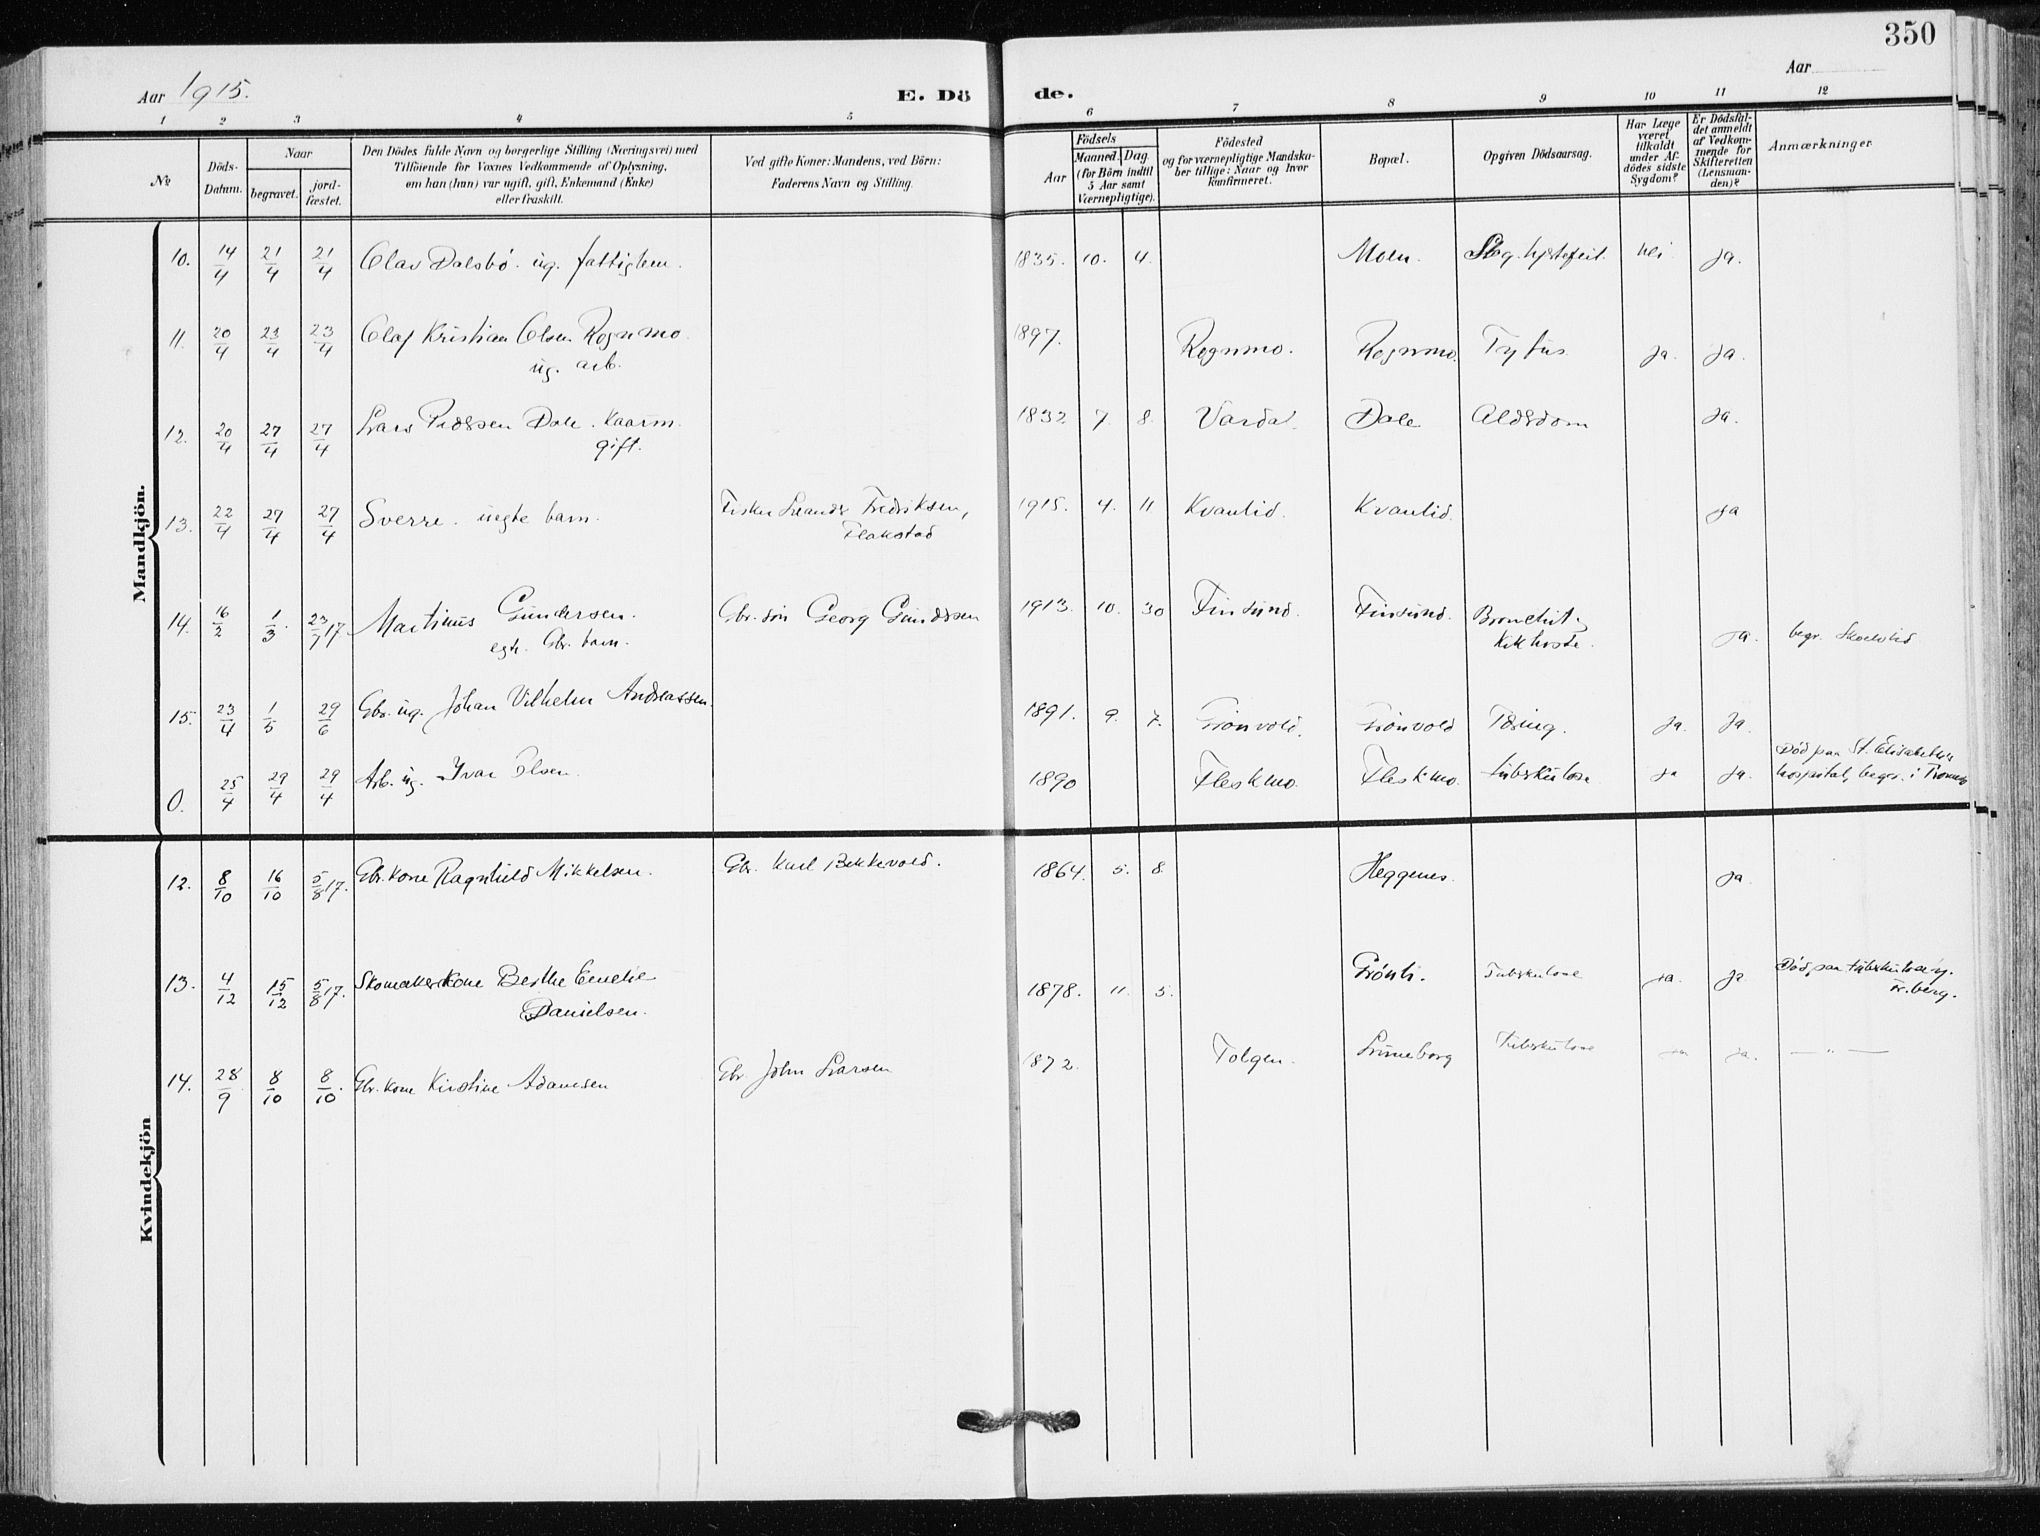 350
Aar 1915.
E. Dö de.
Aar
1 2 3 4 5 6 7 8 9 10 11 12
№
Döds-Datum.
Naar
begravet.
jord-fæstet.
Den Dödes fulde Navn og borgerlige Stilling (Næringsvei) med
Tilföiende for Voxnes Vedkommende af Oplysning,
om han (hun) var ugift, gift, Enkemand (Enke)
eller fraskilt.
Ved gifte Koner: Mandens, ved Börn:
Faderens Navn og Stilling.
Födsels
Aar
Maaned. Dag.
(for Börn indtil
5 Aar samt
Værnepligtige).
Födested
og for værnepligtige Mandska-
ber tillige: Naar og hvor
konfirmeret.
Bopæl.
Opgiven Dödsaarsag.
Har Læge
været
tilkaldt
under Af-
dödes sidste
Sygdom?
Er Dödsfal-
det anmeldt
af Vedkom-
mende for
Skifteretten
(Lensman-
den)?
Anmærkninger
Mandkjön.
10. 14/4 21/4 21/4 Olav Dalsbö. ug. fattiglem. 1835. 10. 4. Moen. hjertefeil. nei ja.
11. 20/4 23/4 23/4 Olaf Kristian Olsen Rognmo. 1897. Rognmo. Rognmo. Tyfus. ja. ja.
ug. arb.
12. 20/4 27/4 27/4 Lars Pedersen Dale. kaarm. 1832 7. 8. Dale Alderdom ja.
gift.
13. 22/4 27/4 27/4 Sverre. uegte barn. Fisker Leander Fredriksen, 1915. 4. 11 Kvantid. Kvantid. ja
Flakstad
14. 16/2 1/3. 23/7 17 Martinus Gundersen. Gbr. sön Georg Gundersen 1913. 10. 30 Finsund. Finsund. Bronchit,
egte. Gbr. barn. Kikhoste. ja.
15. 23/4 1/5 29/6 Gbr. ug. Johan Vilhelm Andreassen. 1891. 9. 7. Grönvold. Grönvold Tæring. ja. ja.
0. 25/4 29/4 29/4 Arb. ug. Ivar Olsen. 1890 Fleskmo. Fleskmo. tuberkulose ja ja. Död paa St. Elisabeths
hospital, begr. i Tromsö
Kvindekjön
12. 8/10 16/10 5/8 17. Gbr. kone Ragnhild Mikkelsen. Gbr. Karl Bekkevold. 1864. 5. 8. Heggenes. ja
13. 4/12 15/12 5/8 17. Skomakerkone Berthe Emelie 1878. 11. 5. Grönli. Tuberkulose ja. ja. Död paa
Danielsen.
14. 28/9 8/10 8/10. Gbr. kone Kirstine Adamsen Gbr. John Larsen 1872. Tolgen. Tuberkulose ja ja. — " —